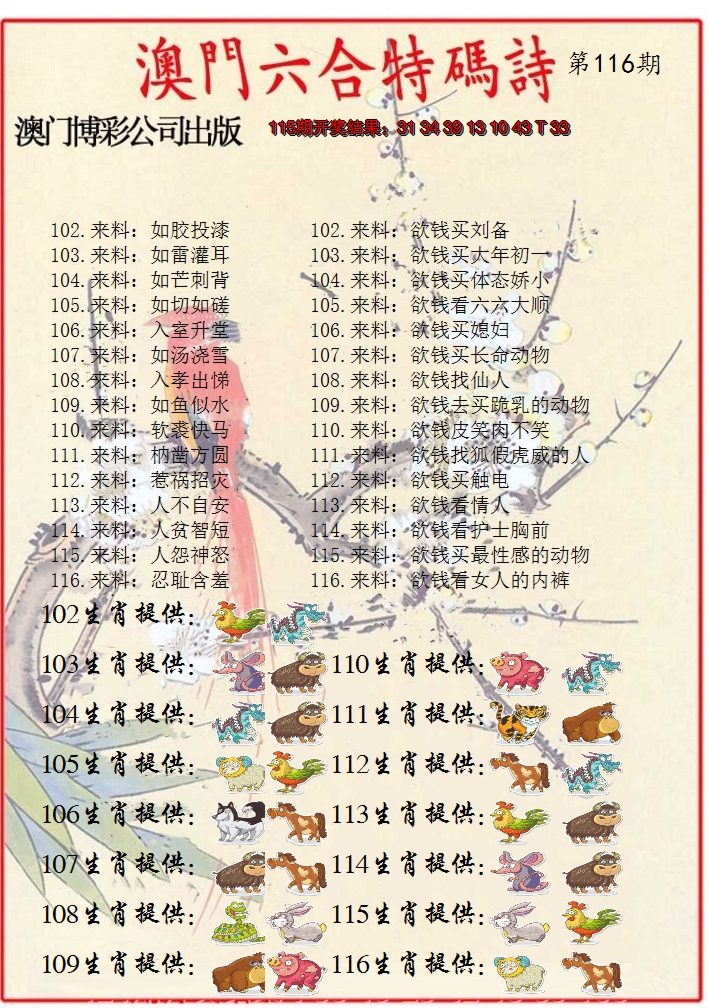 澳門六合特碼詩 第116期
澳门博彩公司出版 115期开奖结果：31 34 39 13 10 43 T 33
102.来料：如胶投漆 102.来料：欲钱买刘备
103.来料：如雷灌耳 103.来料：欲钱买大年初一
104.来料：如芒刺背 104.来料：欲钱买体态娇小
105.来料：如切如磋 105.来料：欲钱看六六大顺
106.来料：入室升堂 106.来料：欲钱买媳妇
107.来料：如汤浇雪 107.来料：欲钱买长命动物
108.来料：入孝出悌 108.来料：欲钱找仙人
109.来料：如鱼似水 109.来料：欲钱去买跪乳的动物
110.来料：软裘快马 110.来料：欲钱皮笑肉不笑
111.来料：枘凿方圆 111.来料：欲钱找狐假虎威的人
112.来料：惹祸招灾 112.来料：欲钱买触电
113.来料：人不自安 113.来料：欲钱看情人
114.来料：人贫智短 114.来料：欲钱看护士胸前
115.来料：人怨神怒 115.来料：欲钱买最性感的动物
116.来料：忍耻含羞 116.来料：欲钱看女人的内裤
102生肖提供：
103生肖提供： 110生肖提供：
104生肖提供： 111生肖提供：
105生肖提供： 112生肖提供：
106生肖提供： 113生肖提供：
107生肖提供： 114生肖提供：
108生肖提供： 115生肖提供：
109生肖提供： 116生肖提供：